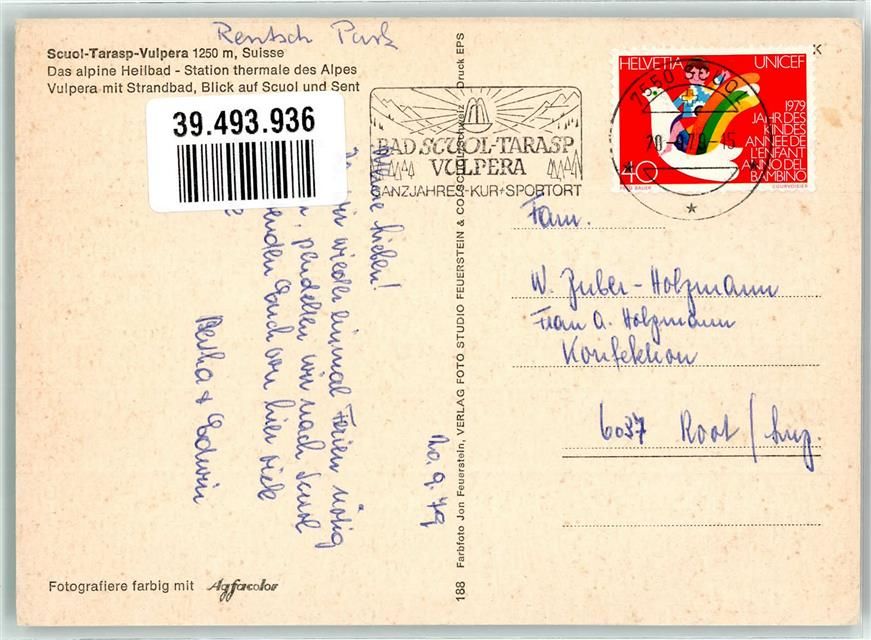 Rentsch Park
Scuol-Tarasp-Vulpera 1250 m, Suisse
Das alpine Heilbad - Station thermale des Alpes
Vulpera mit Strandbad, Blick auf Scuol und Sent
39.493.936
BAD SCUOL-TARASP
VULPERA
GANZJAHRES-KUR+SPORTORT
HELVETIA UNICEF
1979
JAHR DES
KINDES
ANNÉE DE
L'ENFANT
ANNO DEL
BAMBINO
40
COURVOISIER
7550
20.9.79
Meine Lieben!
wir wieder einmal Ferien nötig
pendelten wir nach Scuol
senden Euch von hier viele
Bertha + Edwin
Fam.
W. Zuber-Holzmann
Frau A. Holzmann
Konfektion
6037 Root / Luz.
188 Farbfoto Jon Feuerstein, VERLAG FOTO STUDIO FEUERSTEIN & CO Druck EPS
Fotografiere farbig mit Agfacolor